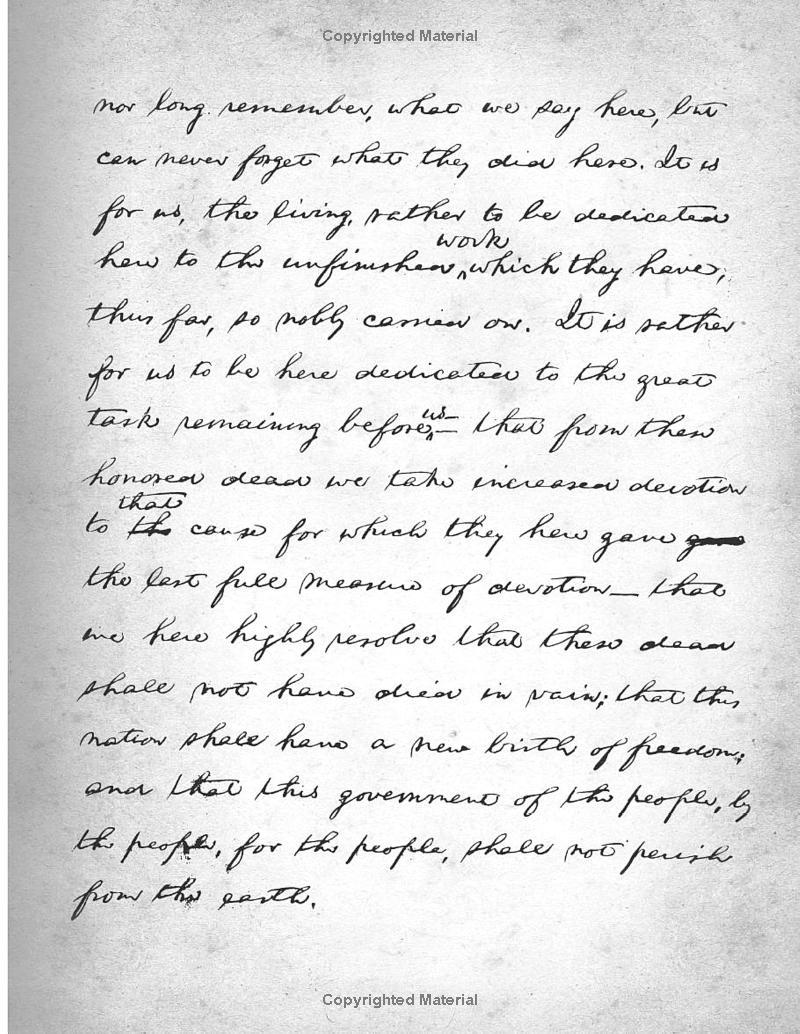 Copyrighted Material
nor long remember, what we say here, but
can never forget what they did here. It is
for us, the living, rather to be dedicated
work
here to the unfinished ‸ which they have,
thus far, so nobly carried on. It is rather
for us to be here dedicated to the great
us
task remaining before ‸ — that from these
honored dead we take increased devotion
that
to the cause for which they here gave gave
the last full measure of devotion — that
we here highly resolve that these dead
shall not have died in vain; that this
nation shall have a new birth of freedom;
and that this government of the people, by
the people, for the people, shall not perish
from the earth.
Copyrighted Material